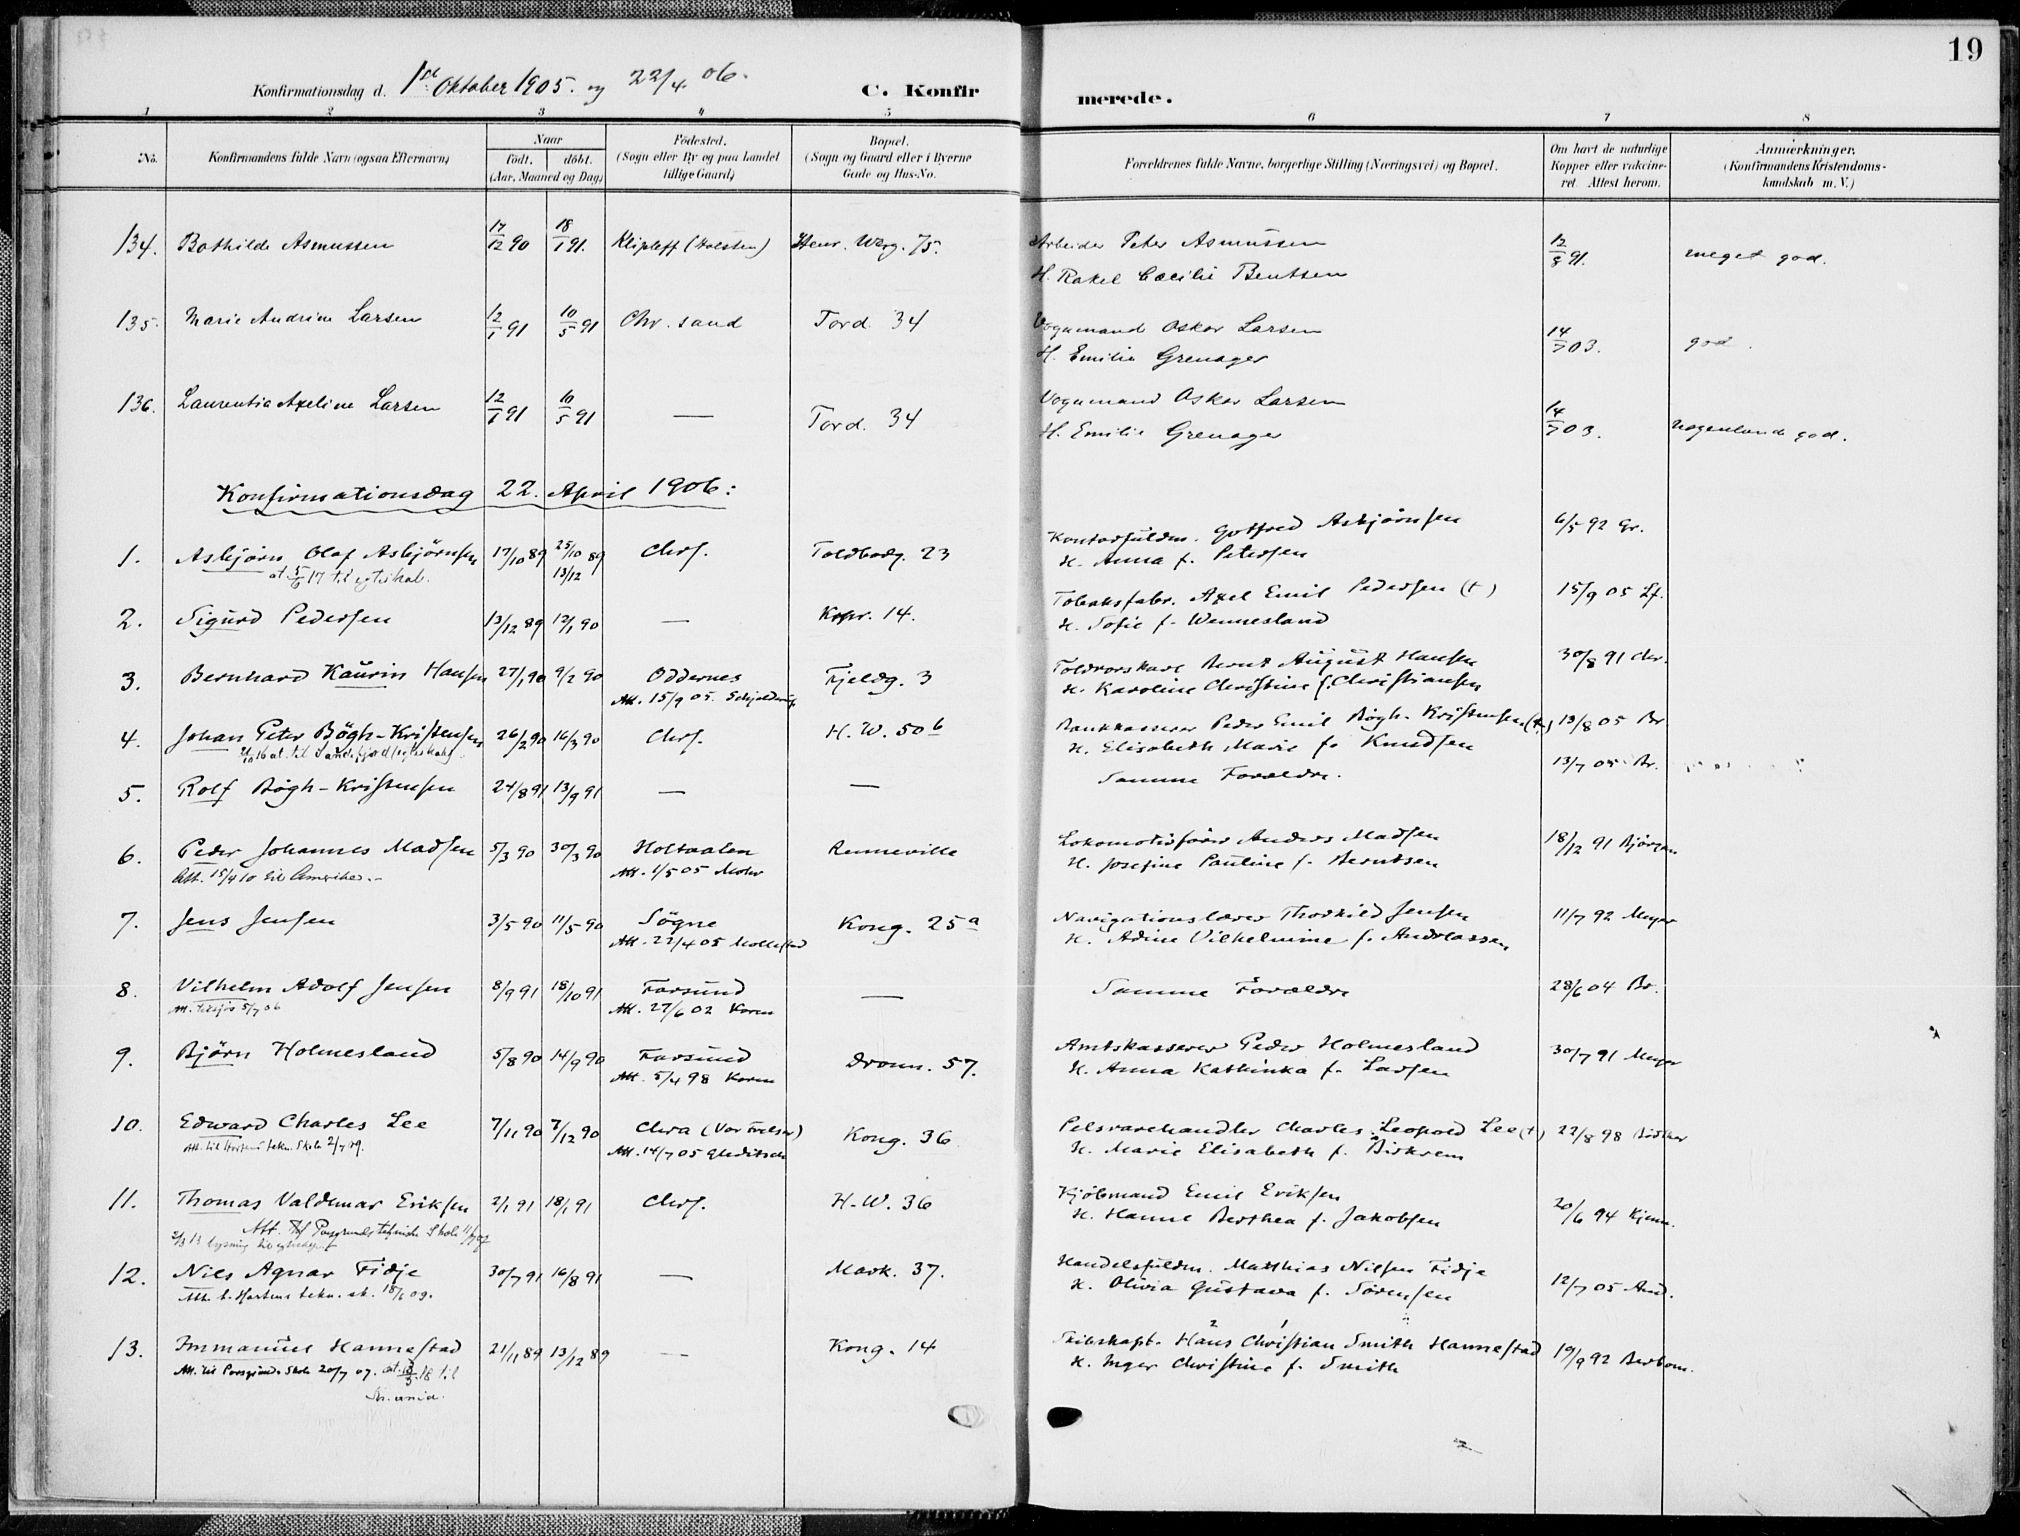 19
Konfirmationsdag d. 1ste Oktober 1905. og 22/4. 06.
C. Konfirmerede.
1 2 3 4 5 6 7 8
No.
Konfirmandens fulde Navn (ogsaa Efternavn)
Naar
födt. döbt.
(Aar, Maaned og Dag)
Födested.
(Sogn eller By og paa Landet
tillige Gaard)
Bopæl.
(Sogn og Gaard eller i Byerne
Gade og Hus-No.
Forældrenes fulde Navne, borgerlige Stilling (Næringsvei) og Bopæl.
Om havt de naturlige
Kopper eller vaccine-
ret. Attest herom.
Anmærkninger.
(Konfirmandens Kristendoms-
kundskab m. V.)
134. Bothilde Asmussen 17/12 90 18/1 91. Klipleff (Holsten) Henr. Werg. 75. Arbeider Peter Asmussen 12/8 91. meget god.
H. Rakel Cæcilie Bentsen
135. Marie Andrine Larsen 12/1 91 10/5 91 Chr. sand Tord. 34 Vognmand Oskar Larsen 14/7 03. god.
H. Emilie Grenager
136. Laurentia Axeline Larsen 12/1 91 10/5 91 — Tord. 34 Vognmand Oskar Larsen 14/7 03. nogenlunde god.
H. Emilie Grenager
Konfirmationsdag 22. April 1906:
1. Asbjørn Olaf Asbjørnsen 17/10 89 25/10 89 Chrs. Toldbodg. 23 Kontorfuldm. Gotfred Asbjørnsen 6/5 92 Gr.
at. 5/6 17 til egteskab. 13/12 H. Anna f. Petersen
2. Sigurd Pedersen 13/12 89 12/1 90 — Kr. 14. Tobaksfabr. Axel Emil Pedersen (+) 15/9 05 Lf.
H. Sofie f. Wennesland
3. Bernhard Kaurin Hansen 27/1 90 9/2 90 Oddernes Fjeldg. 3 Toldrorskarl Bernt August Hansen 30/8 91 Chr.
Att. 15/9 05. H. Karoline Christine f. Christiansen
4. Johan Peter Bögh-Kristensen 26/2 90 16/3 90 Chrs. H. W. 50 b Bankkasserer Peder Emil Bögh-Kristensen (+) 13/8 05 Br.
16 at. til Sandefjord (egteskab) H. Elisabeth Marie f. Knudsen
5. Rolf Bögh-Kristensen 24/8 91 13/9 91 — — Samme Forældre. 13/7 05 Br.
6. Peder Johannes Madsen 5/3 90 30/3 90 Holtaalen Renneville Lokomotivförer Anders Madsen 18/12 91 Bjørgan
Att. 15/4 10 til Amerika.- Att. 1/5 05 Mohr H. Josefine Pauline f. Berntsen
7. Jens Jensen 3/5 90 11/5 90 Sögne Kong. 25 a Navigationslærer Thorkild Jensen 11/7 92 Meyer
Att. 22/4 05 Mollestad H. Adine Vilhelmine f. Andreassen
8. Vilhelm Adolf Jensen 8/9 91 18/10 91 Farsund — Samme Forældre 28/6 04 Br.
5/7 06 Att. 27/6 02 Koren
9. Björn Holmesland 5/8 90 14/9 90 Farsund Dronn. 57. Amtskasserer Peder Holmesland 30/7 91 Meyer
Att. 5/4 98 Koren H. Anna Kathinka f. Larsen
10. Edward Charles Lee 7/11 90 7/12 90 Chra (Vor Frelser) Kong. 36 Pelsvarehandler Charles Leopold Lee (+) 22/8 98 Bödtker
Att. til Hortens tekn. Skole 2/7 09. Att. 14/7 05 Gleditsch H. Marie Elisabeth f. Birkrem
11. Thomas Valdemar Eriksen 2/1 91 18/1 91 Chrs. H. W. 36 Kjöbmand Emil Eriksen 20/6 94 Kjenn.
Att. til Porsgrunds tekniske Skole H. Hanne Berthea f. Jakobsen
2/3 13 lysning til egteskab
12. Nils Agnar Fidje 30/7 91 16/8 91 — Mark. 37. Handelsfuldm. Matthias Nilsen Fidje 12/7 05 And.
Att. t. Hortens tekn. sk. 18/6 09. H. Olivia Gustava f. Sörensen
13. Immanuel Hannestad 21/11 89 13/12 89 — Kong. 14 Skibskapt. Hans Christian Smith Hannestad 19/9 92 Berbom.
Att. til Porsgrunds Skole 20/7 07. at 13/3 18 til H. Inger Christine f. Smith
Kr.ania.